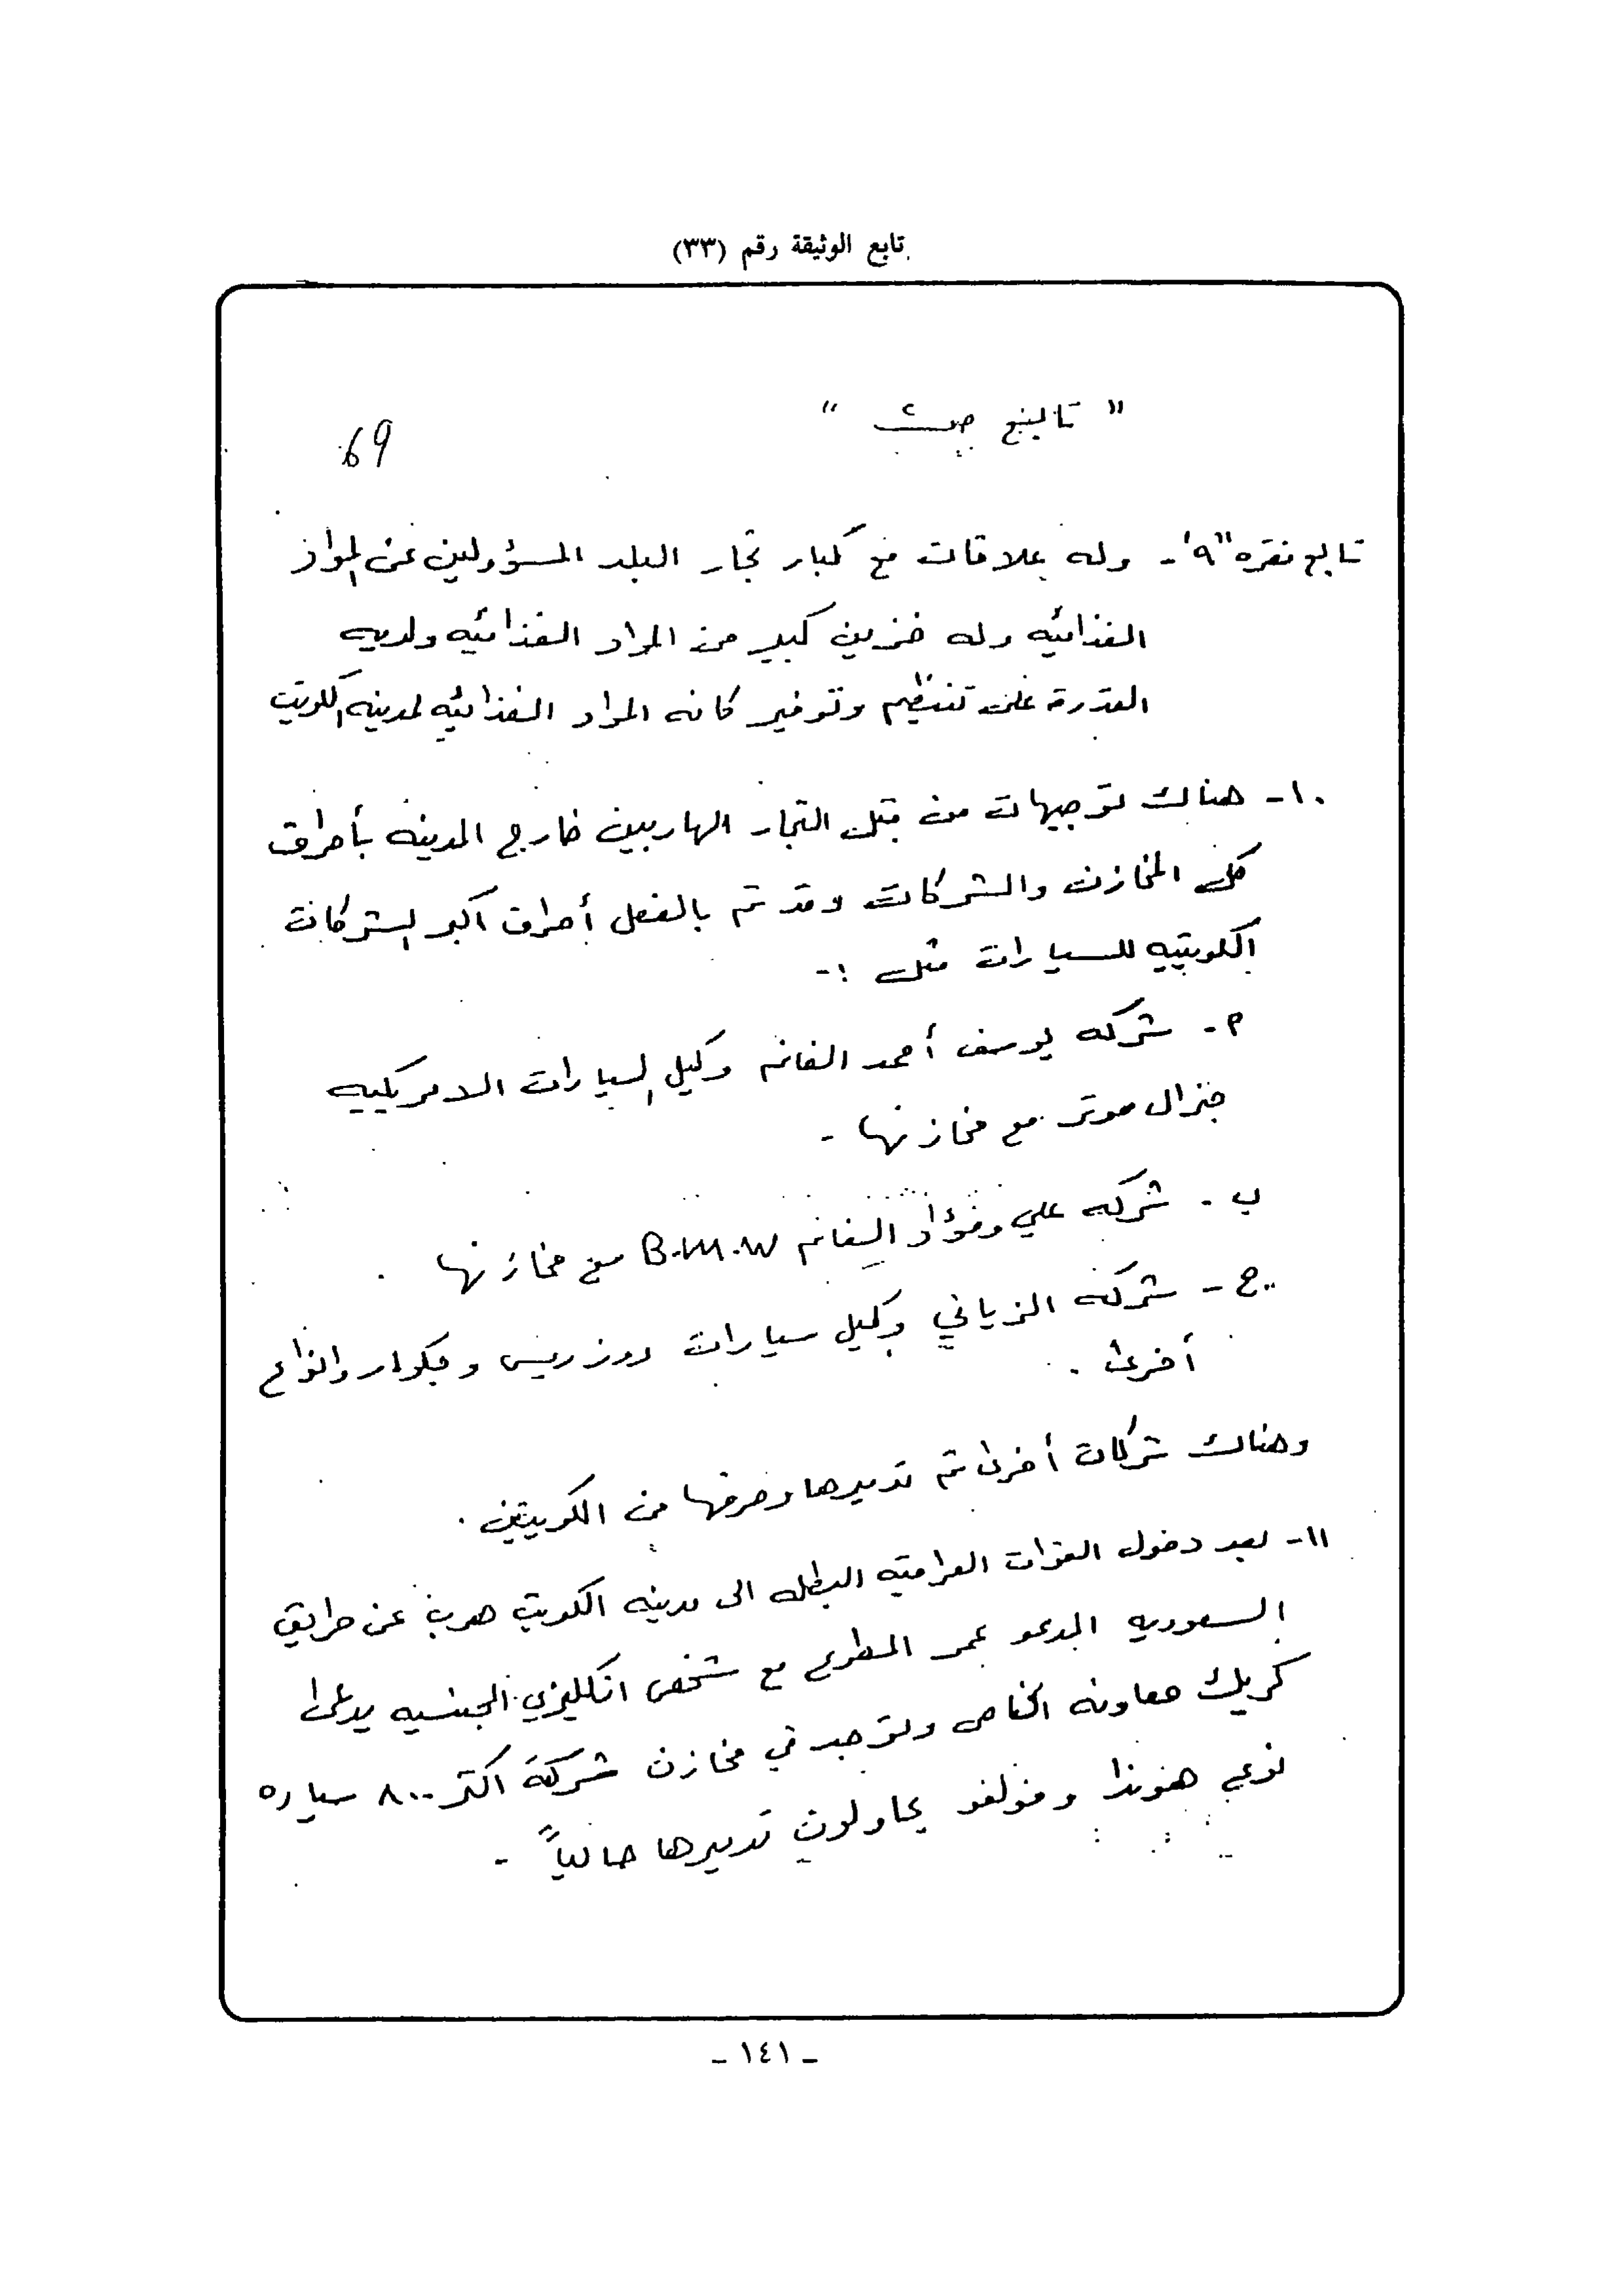 تابع الوثيقة رقم (٣٣)
" تابع "
69
تابع فقره "٩" - وله علاقات مع كبار تجار البلد المسؤولين عن المواد
الغذائيه وله خزين كبير من المواد الغذائيه ولديه
القدرة على تنظيم وتوفير كافه المواد الغذائيه لمدينه الكويت
١٠- هناك توجيهات من قبل التجار الهاربين خارج المدينه بأحراق
كل المخازن والشركات وقد تم بالفعل أحراق اكبر الشركات
الكويتيه للسيارات مثل :-
أ - شركه يوسف أحمد الغانم وكيل السيارات الامريكيه
جنرال موتر مع مخازنها -
ب . شركه علي وفؤاد الغانم B.M.W مع مخازنها .
ج - شركه الزياني وكيل سيارات روزريس وجكوار وانواع
أخرى .
وهناك شركات أخرى تم تدميرها وحرقها من الكويتين .
١١- بعد دخول القوات العراقيه البطله الى مدينه الكويت هرب عن طريق
السعوديه المدعو عمر المطوع مع شخص انكليزي الجنسيه يدعى
كريك معاونه الخاص وتوجد في مخازن شركة اكثر ٨٠٠ سياره
نوع هنوندا وفولفو يحاولون تدميرها حالياً -
- ١٤١ -